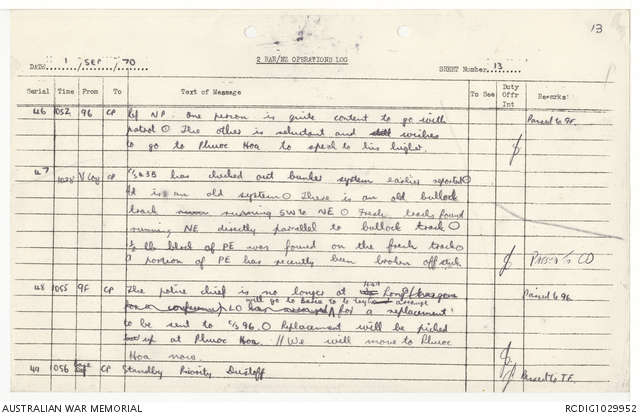 13
2 RAR/NZ OPERATIONS LOG
DATE 1 / SEP / 70
SHEET Number 13
Serial Time From To Text of Message To See Duty Offr Int Remarks
46 1052 96 CP Ref NP. One person is quite content to go with Passed to 9F.
patrol ⊙ The other is reluctant and wishes
to go to Phuoc Hoa to speak to his higher.
47 V Coy CP has checked out bunker system earlier reported ⊙
It is an old system ⊙ There is an old bullock
track running SW to NE ⊙ Fresh tracks found
running NE directly parallel to bullock track ⊙
½ lb block of PE was found on the fresh track ⊙
a portion of PE has recently been broken off stick. Passed to CO
48 1055 9F CP The police chief is no longer at Passed to 96
LO will go to to try attempt for a replacement
to be sent to C/S 96. ⊙ Replacement will be picked
up at Phuoc Hoa. // We will move to Phuoc
Hoa now.
49 1056 CP Standby Priority Dustoff Passed to TF.
AUSTRALIAN WAR MEMORIAL
RCDIG1029952